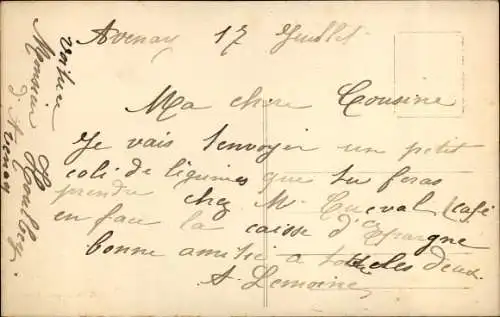 Avenay 17 Juillet
Ma chere Cousine
Je vais t'envoyer un petit
coli de légumes que tu feras
prendre chez M. Cueval (café
en face la caisse d'Epargne
bonne amitié a toutes deux.
A. Lemoine
Monsieur
d'Avenay